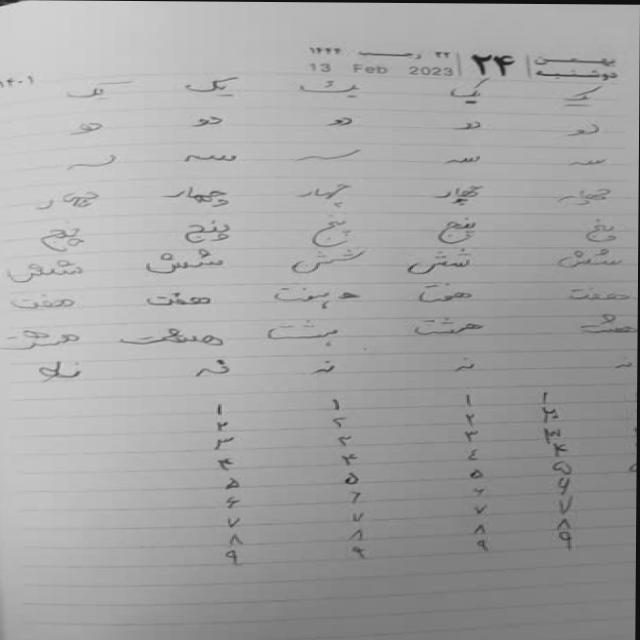 بهمن ۲۴ ۲۲ رجب ۱۴۴۴
دوشنبه 13 Feb 2023
۱۴۰۱
یک یک یک یک یک
دو دو دو دو دو
سه سه سه سه سه
چهار چهار چهار چهار چهار
پنج پنج پنج پنج پنج
شش شش شش شش شش
هفت هفت هفت هفت هفت
هشت هشت هشت هشت
نه نه نه نه نه
۱ ۱ ۱ ۱
۲ ۲ ۲ ۲
۳ ۳ ۳ ۳
۴ ٤ ۴ ۴
۵ ۵ ۵ ۵
۶ ۶ ۶ ۶
۷ ۷ ۷ ۷
۸ ۸ ۸ ۸
۹ ۹ ۹ ۹